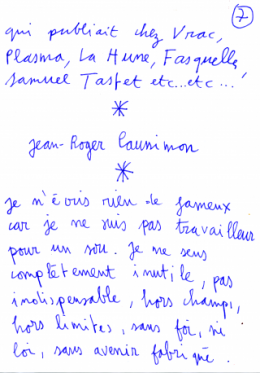 7
qui publiait chez Vrac,
Plasma, La Hune, Fasquelle,
Samuel Tastet etc...etc...!
*
Jean-Roger Caussimon
*
Je n'écris rien de fameux
car je ne suis pas travailleur
pour un sou. Je me sens
complètement inutile, pas
indispensable, hors champs,
hors limites, sans foi, ni
loi, sans avenir fabriqué.